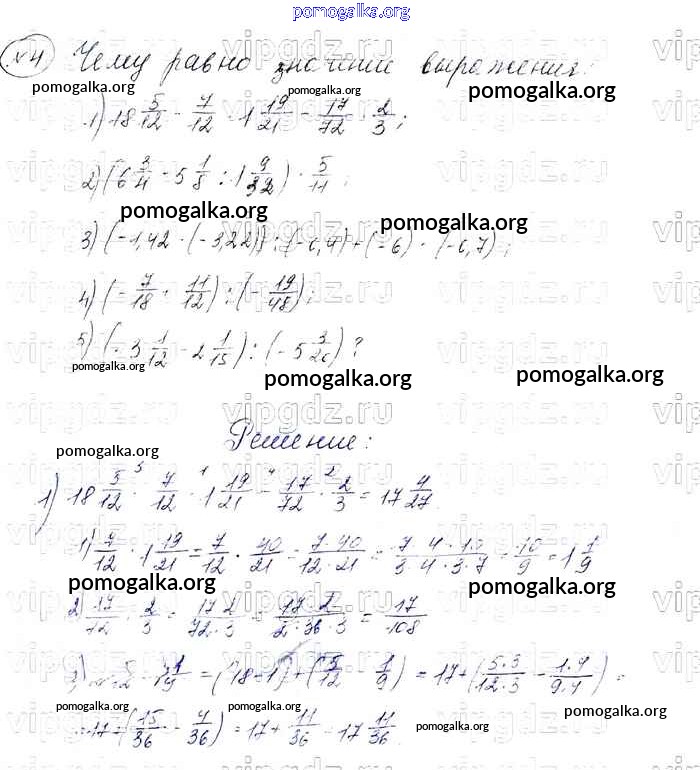 pomogalka.org
№4 Чему равно значение выражения:
pomogalka.org pomogalka.org pomogalka.org
1) 18 5/12 - 7/12 · 1 19/21 - 17/72 · 2/3;
2) (6 3/4 - 5 1/8 : 1 9/32) · 5/11;
pomogalka.org pomogalka.org
3) (-1,42 · (-3,22)) : (-0,4) + (-6) · (-0,7);
4) (-7/18 · 11/12) : (-19/48);
5) (-3 1/12 - 2 1/15) : (-5 3/20)?
pomogalka.org pomogalka.org pomogalka.org
Решение:
pomogalka.org pomogalka.org
1) 18 5/12 - 7/12 · 1 19/21 - 17/72 · 2/3 = 17 4/27
1) 7/12 · 1 19/21 = 7/12 · 40/21 = 7·40/12·21 = 7·4·10/3·4·3·7 = 10/9 = 1 1/9
pomogalka.org pomogalka.org
2) 17/72 · 2/3 = 17·2/72·3 = 17·2/2·36·3 = 17/108
= (18-1) + (5/12 - 1/9) = 17 + (5·3/12·3 - 1·4/9·4) =
pomogalka.org pomogalka.org
= 17 + (15/36 - 4/36) = 17 + 11/36 = 17 11/36
pomogalka.org pomogalka.org
vipgdz.ru